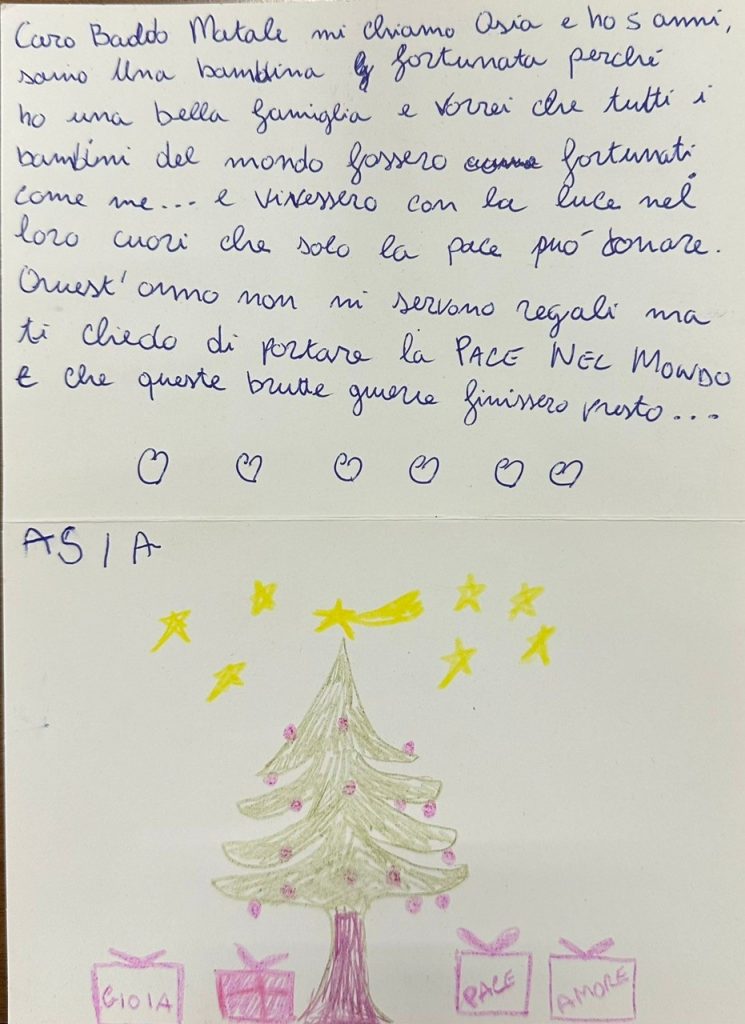 Caro Babbo Natale mi chiamo Asia e ho 5 anni,
sono una bambina fortunata perché
ho una bella famiglia e vorrei che tutti i
bambini del mondo fossero fortunati
come me... e vivessero con la luce nel
loro cuori che solo la pace può donare.
Quest'anno non mi servono regali ma
ti chiedo di portare la PACE NEL MONDO
E che queste brutte guerre finissero presto...
ASIA
GIOIA
PACE
AMORE